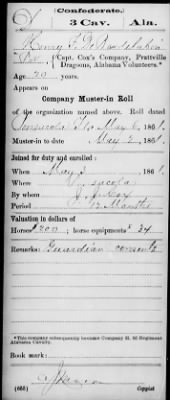 (Confederate.)
3 Cav. Ala.
Henry
Pvt, Capt. Cox's Company, Prattville Dragoons, Alabama Volunteers.*
Age 20 years.
Appears on
Company Muster-in Roll
of the organization named above. Roll dated
Pensacola Fla May 6, 1861.
Muster-in to date May 2, 1861.
Joined for duty and enrolled:
When May 3, 1861.
Where Pensacola
By whom J. J. Cox
Period 12 Months
Valuation in dollars of
Horse $200; horse equipments $34
Remarks: Guardian consents
*This company subsequently became Company H, 3d Regiment Alabama Cavalry.
Book mark:
(655)
Copyist